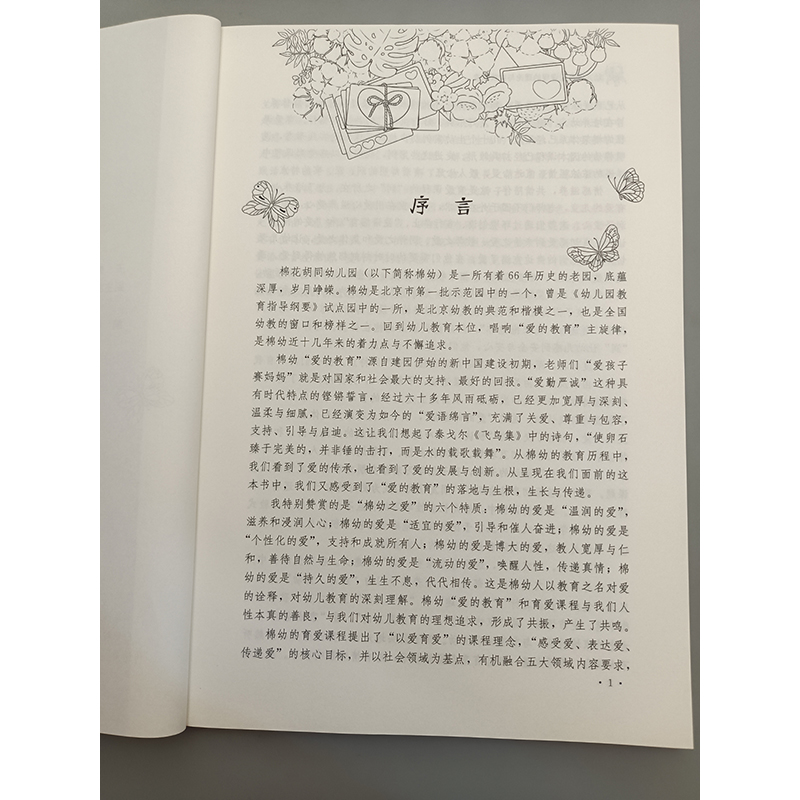 序言
棉花胡同幼儿园（以下简称棉幼）是一所有着66年历史的老园，底蕴
深厚，岁月峥嵘。棉幼是北京市第一批示范园中的一个，曾是《幼儿园教
育指导纲要》试点园中的一所，是北京幼教的典范和楷模之一，也是全国
幼教的窗口和榜样之一。回到幼儿教育本位，唱响“爱的教育”主旋律，
是棉幼近十几年来的着力点与不懈追求。
棉幼“爱的教育”源自建园伊始的新中国建设初期，老师们“爱孩子
赛妈妈”就是对国家和社会最大的支持、最好的回报。“爱勤严诚”这种具
有时代特点的铿锵誓言，经过六十多年风雨砥砺，已经更加宽厚与深刻、
温柔与细腻，已经演变为如今的“爱语绵言”，充满了关爱、尊重与包容，
支持、引导与启迪。这让我们想起了泰戈尔《飞鸟集》中的诗句，“使卵石
臻于完美的，并非锤的击打，而是水的载歌载舞”。从棉幼的教育历程中，
我们看到了爱的传承，也看到了爱的发展与创新。从呈现在我们面前的这
本书中，我们又感受到了“爱的教育”的落地与生根，生长与传递。
我特别赞赏的是“棉幼之爱”的六个特质：棉幼的爱是“温润的爱”，
滋养和浸润人心；棉幼的爱是“适宜的爱”，引导和催人奋进；棉幼的爱是
“个性化的爱”，支持和成就所有人；棉幼的爱是博大的爱，教人宽厚与仁
和，善待自然与生命；棉幼的爱是“流动的爱”，唤醒人性，传递真情；棉
幼的爱是“持久的爱”，生生不息，代代相传。这是棉幼人以教育之名对爱
的诠释，对幼儿教育的深刻理解。棉幼“爱的教育”和育爱课程与我们人
性本真的善良，与我们对幼儿教育的理想追求，形成了共振，产生了共鸣。
棉幼的育爱课程提出了“以爱育爱”的课程理念，“感受爱、表达爱、
传递爱”的核心目标，并以社会领域为基点，有机融合五大领域内容要求，
·1·